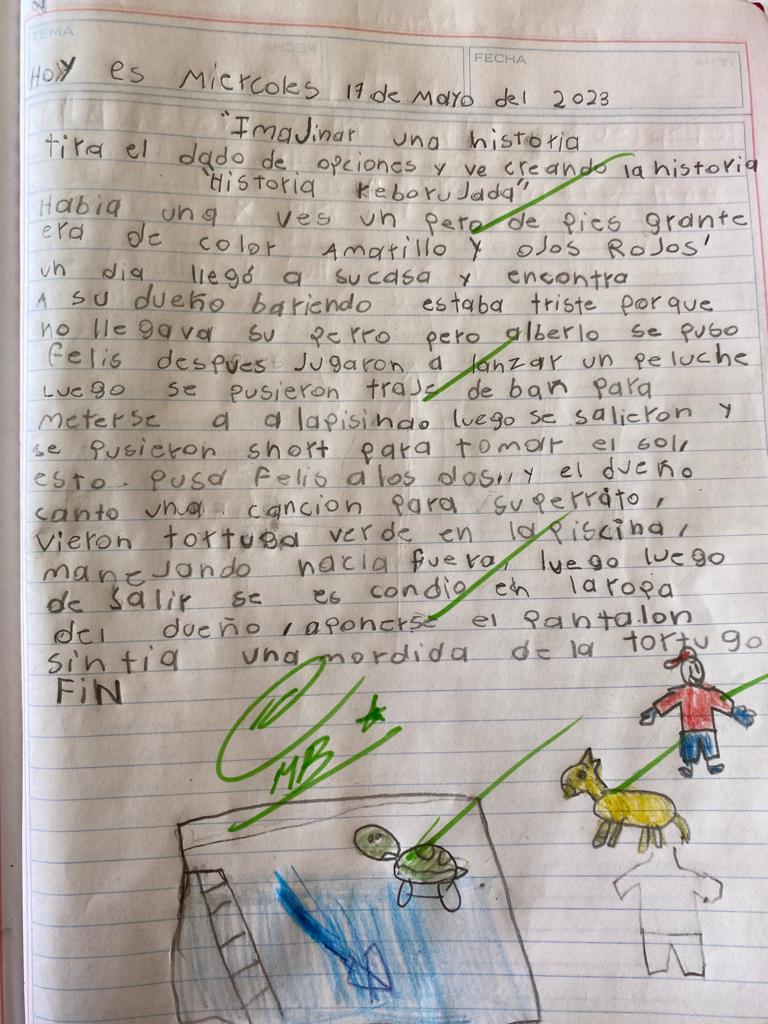 TEMA
FECHA
Hoy es Miercoles 17 de Mayo del 2023
"Imajinar una historia
tira el dado de opciones y ve creando la historia
"Historia Reborujada"
Habia una ves un pero de pies grante
era de color Amarillo y ojos Rojos'
un dia llegó a sucasa y encontra
A su dueño bariendo estaba triste porque
no llegava su perro pero alberto se puso
felis despues Jugaron a lanzar un peluche
Luego se pusieron traje de ban para
meterse a a lapisindo luego se salieron y
se pusieron short para tomar el sol,
esto. puso felis alos dos,, y el dueño
canto una cancion para superrito,
vieron tortuga verde en lapiscina,
manejando hacia fuera, luego luego
de salir se es condio en laropa
del dueño, aponerse el pantalon
sintia una mordida de la tortugo
FiN
10
MB